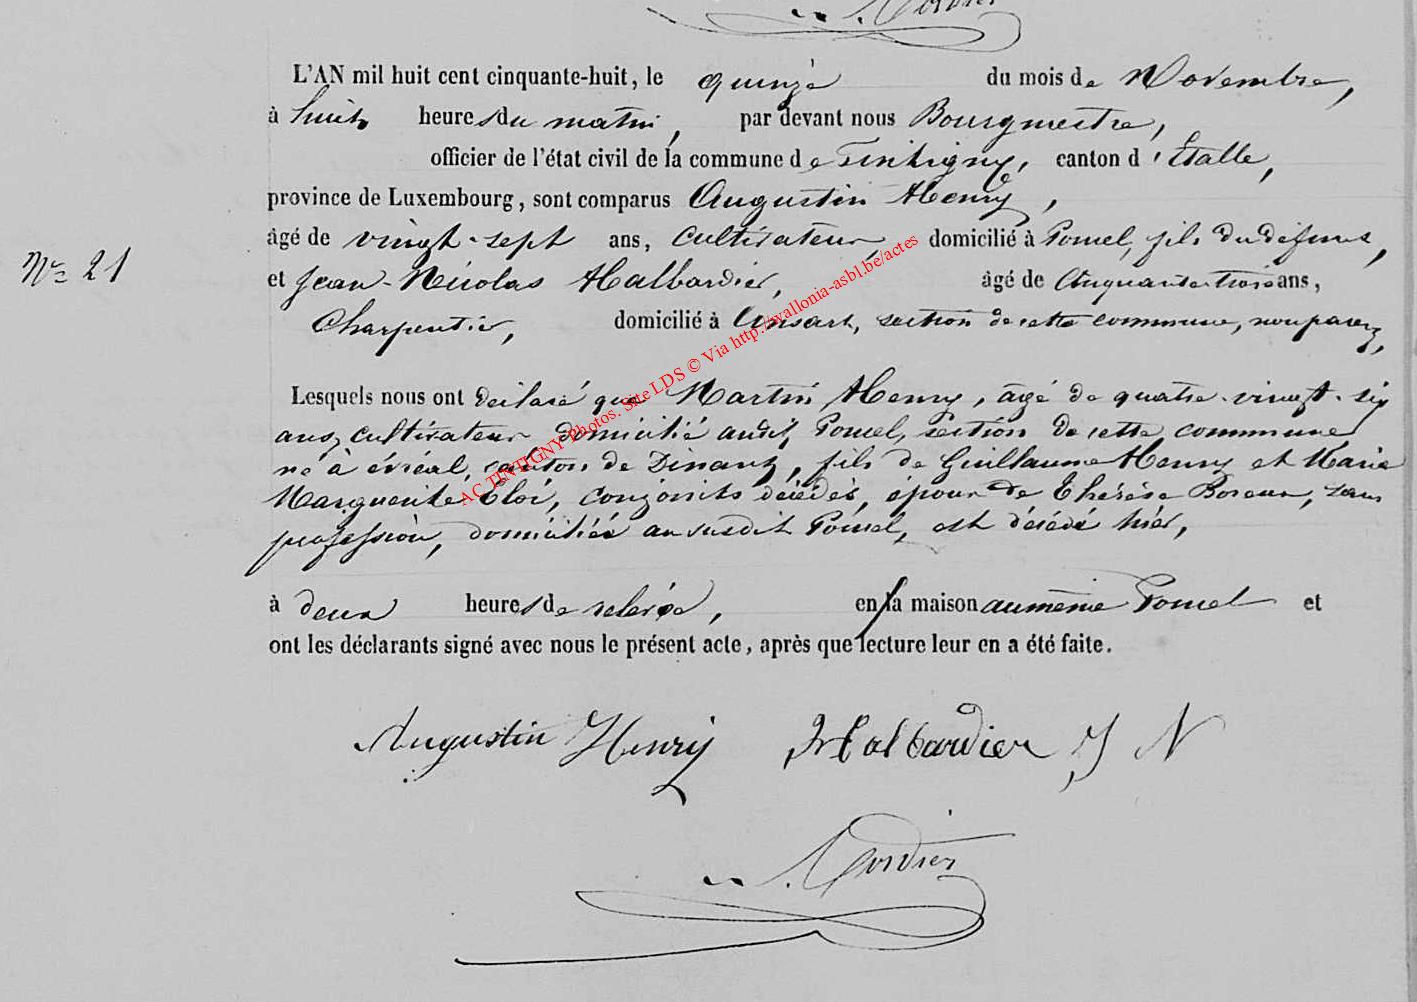 L'AN mil huit cent cinquante-huit, le quinze du mois de Novembre,
à huit heures du matin, par devant nous Bourgmestre,
officier de l'état civil de la commune de Tintigny, canton d'Etalle,
province de Luxembourg, sont comparus Augustin Henry,
âgé de vingt-sept ans, cultivateur, domicilié à Poncel, fils du défunt,
N° 21
et Jean-Nicolas Halbardier, âgé de cinquante-trois ans,
Charpentier, domicilié à Ansart, section de cette commune, non parent,
Lesquels nous ont déclaré que Martin Henry, âgé de quatre-vingt-six
ans, cultivateur domicilié audit Poncel, section de cette commune,
né à évréal, canton de Dinant, fils de Guillaume Henry et Marie
Marguerite Eloi, conjoints décédés, époux de Thérèse Boreux, sans
profession, domiciliée au susdit Poncel, est décédé hier,
à deux heures de relevée, en sa maison au même Poncel et
ont les déclarants signé avec nous le présent acte, après que lecture leur en a été faite.
Augustin Henry Halbardier J N
AC TINTIGNY Photos. Site LDS © Via http://wallonia-asbl.be/actes